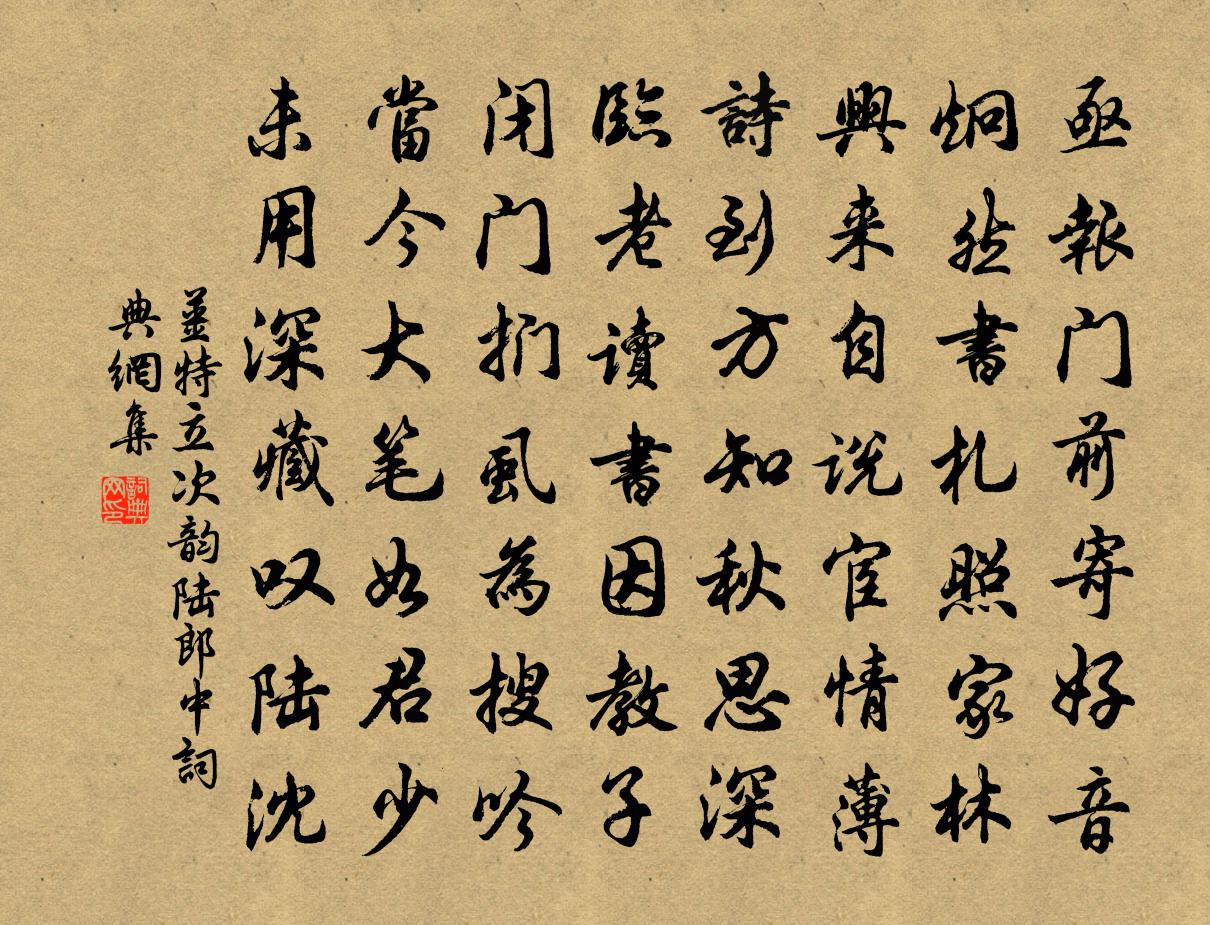 亟報门前寄好音
炯然書札照家林
興来自说宦情薄
詩到方知秋思深
臨老讀書因教子
闭门捫虱為搜吟
當今大笔如君少
未用深藏叹陆沈
薑特立次韵陆郎中詞
典網集
詞典网印